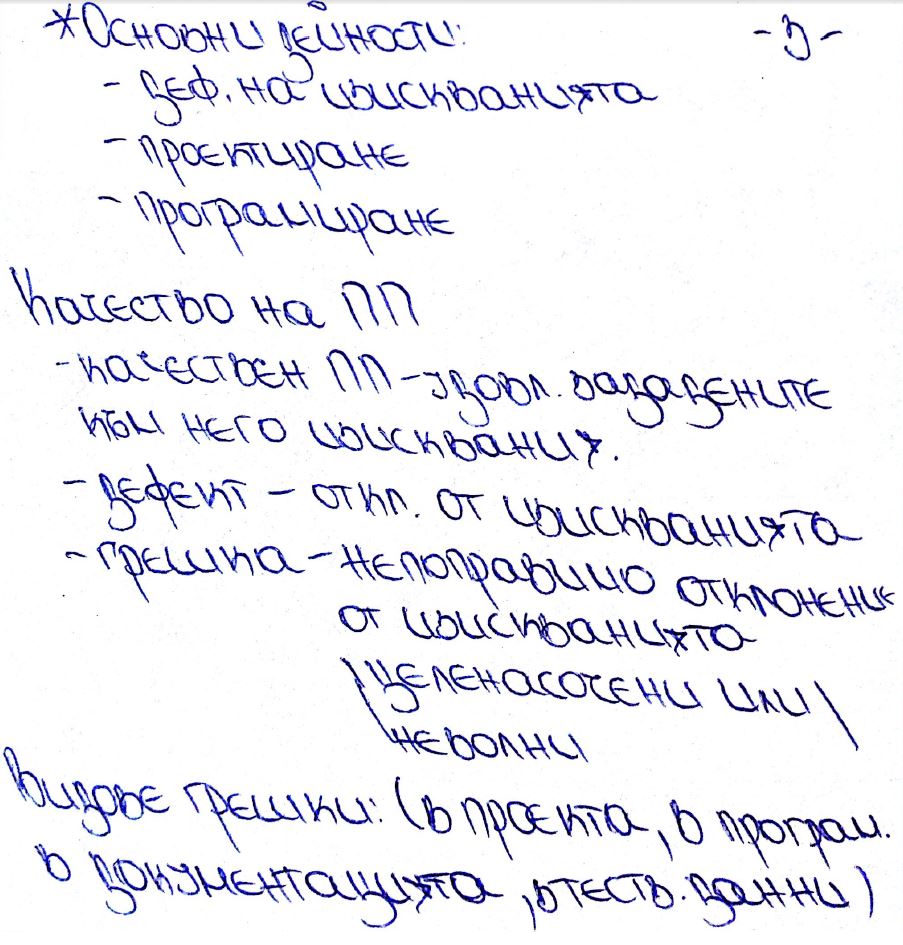 *Основни дейности: -5-
- деф. на изискванията
- проектиране
- програмиране
Качество на ПП
- качествен ПП - удовл. зададените
към него изисквания.
- дефект - откл. от изискванията
- грешка - непоправимо отклонение
от изискванията
\целенасочени или\
неволни
Видове грешки: (в проекта, в програм.
в документацията, в теств. данни)